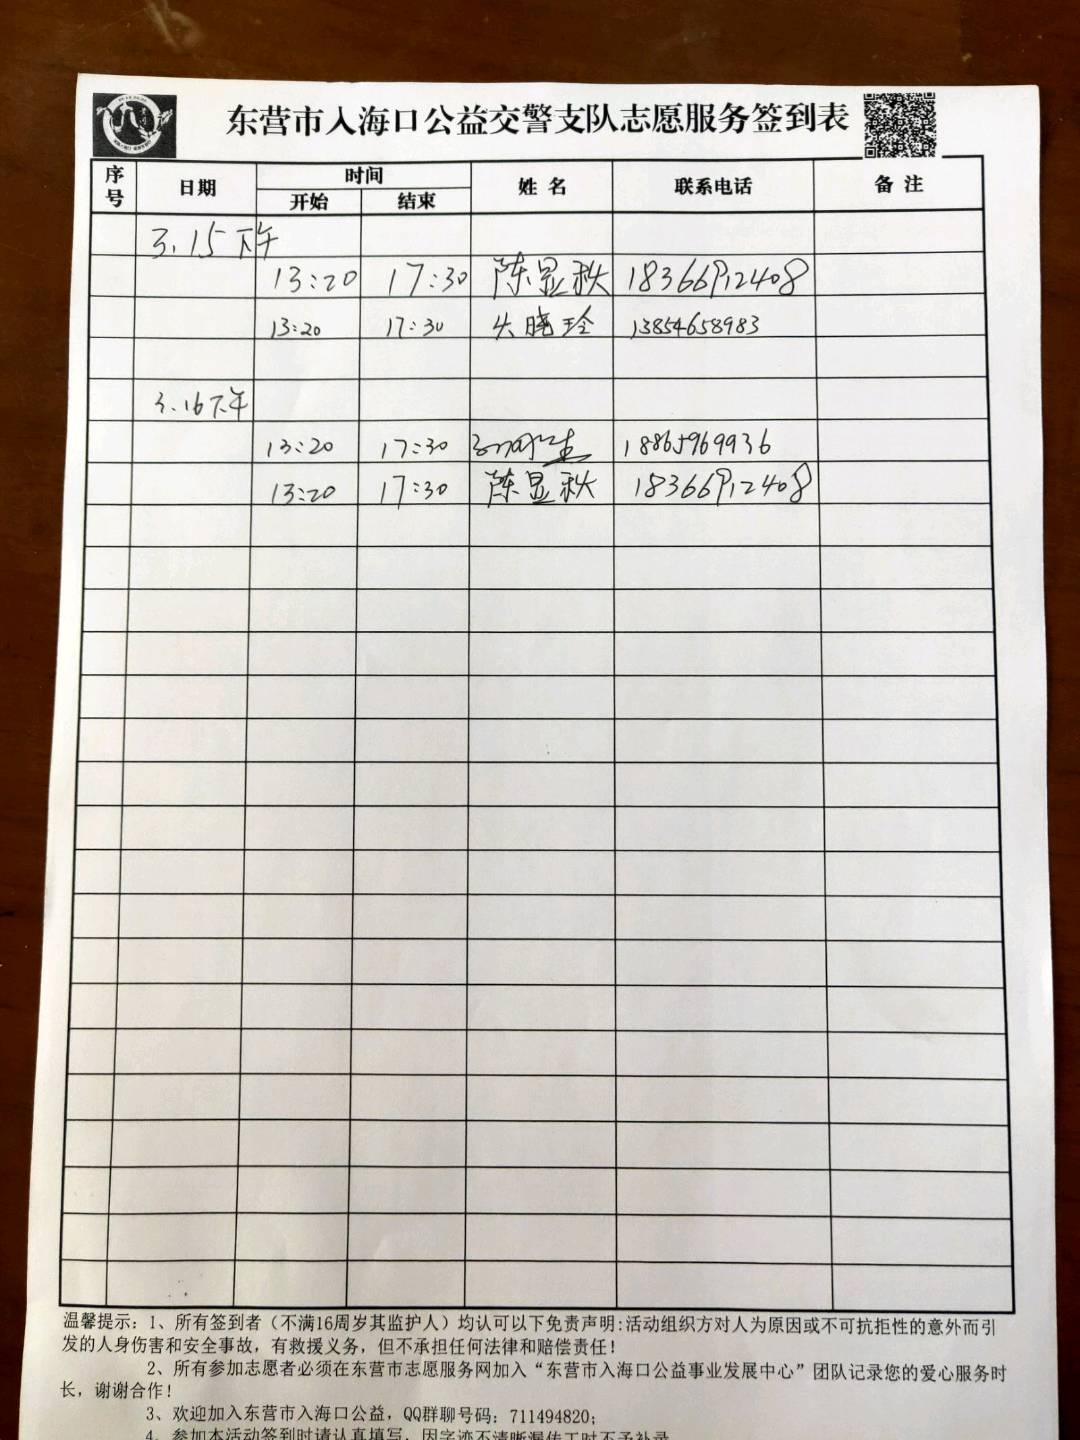 东营市入海口公益交警支队志愿服务签到表
序号 日期 时间 姓名 联系电话 备注
开始 结束
3.15下午
13:20 17:30 陈显秋 18366912408
13:20 17:30 晓玲 13854658983
3.16下午
13:20 17:30 18865969936
13:20 17:30 陈显秋 18366912408
温馨提示：1、所有签到者（不满16周岁其监护人）均认可以下免责声明:活动组织方对人为原因或不可抗拒性的意外而引
发的人身伤害和安全事故，有救援义务，但不承担任何法律和赔偿责任！
2、所有参加志愿者必须在东营市志愿服务网加入“东营市入海口公益事业发展中心”团队记录您的爱心服务时
长，谢谢合作！
3、欢迎加入东营市入海口公益，QQ群聊号码：711494820；
4、参加本活动签到时请认真填写，因字迹不清晰漏传工时不予补录